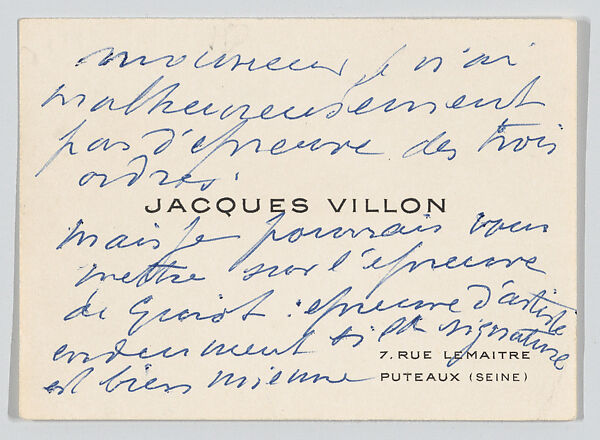 monsieur je n'ai
malheureusement
pas d'épreuve des trois
ordres.
JACQUES VILLON
mais je pourrais vous
mettre sur l'épreuve
de Guiot : épreuve d'artiste
evidemment si la signature
est bien mienne
7. RUE LEMAITRE
PUTEAUX (SEINE)